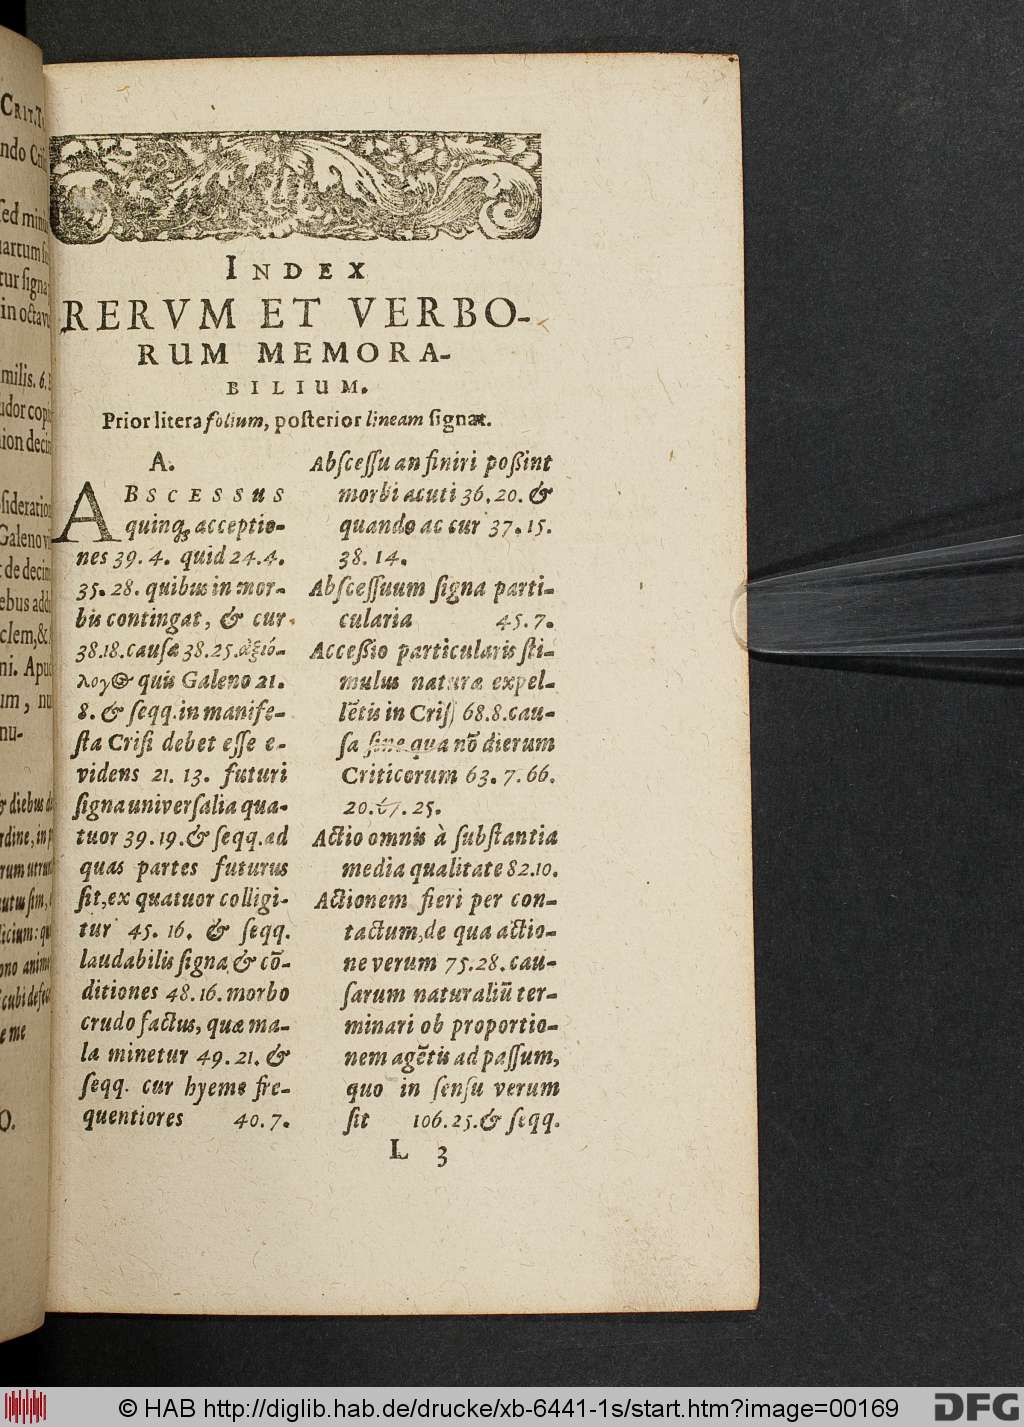 CRIT. T.
ndo Cri
sed mini
uartum si
tur signa
in octavu
milis. 6.
udor copi
ion decim
Galeno vi
t de decim
ebus addi
clem, &c.
ni. Apud
um, nu
nu-
& diebus d
rdine, in p
rum utrun
utus sim,
licium: qu
ono anima
cubi defec
e me
O.
INDEX
RERVM ET VERBO-
RUM MEMORA-
BILIUM.
Prior litera folium, posterior lineam signat.
A.
ABSCESSUS
quinq; acceptio-
nes 39. 4. quid 24. 4.
35. 28. quibus in mor-
bis contingat, & cur
38.18. causæ 38. 25. ἀξιό-
λογος quis Galeno 21.
8. & seqq. in manife-
sta Crisi debet esse e-
videns 21. 13. futuri
signa universalia qua-
tuor 39. 19. & seqq. ad
quas partes futurus
sit, ex quatuor colligi-
tur 45. 16. & seqq.
laudabilis signa & cō-
ditiones 48. 16. morbo
crudo factus, quæ ma-
la minetur 49. 21. &
seqq. cur hyeme fre-
quentiores 40. 7.
Abscessu an finiri poßint
morbi acuti 36. 20. &
quando ac cur 37. 15.
38. 14.
Abscessuum signa parti-
cularia 45. 7.
Acceßio particularis sti-
mulus naturæ expel-
lētis in Crisi 68. 8. cau-
sa sine qua nō dierum
Criticorum 63. 7. 66.
20. 67. 25.
Actio omnis à substantia
media qualitate 82. 10.
Actionem fieri per con-
tactum, de qua actio-
ne verum 75. 28. cau-
sarum naturaliū ter-
minari ob proportio-
nem agētis ad passum,
quo in sensu verum
sit 106. 25. & seqq.
L 3
© HAB http://diglib.hab.de/drucke/xb-6441-1s/start.htm?image=00169
DFG